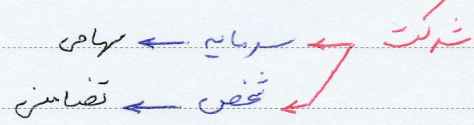 شرکت ← سرمایه ← سهامی
← شخص ← تضامنی